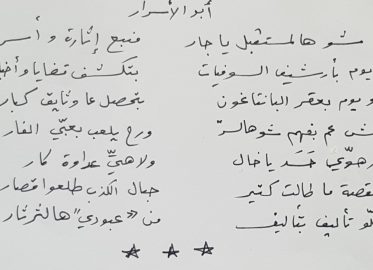 أبو الأسرار
شو هالمستقبل يا جار منبع إثارة و أسر
يوم بأرشيف السوفيات بتكشف قضايا وأخبا
و يوم بعقر البانتاغون بتحصل عا وثايق كبار
ش عم بفهم شو هالسرّ ورح يلعب بعبّي الفار
يا خال ولا هيّي عداوة كار
قصة ما طالت كتير حبال الكذب طلعوا قصار
لّو تأليف بتأليف من «عبودي» هالثرثار